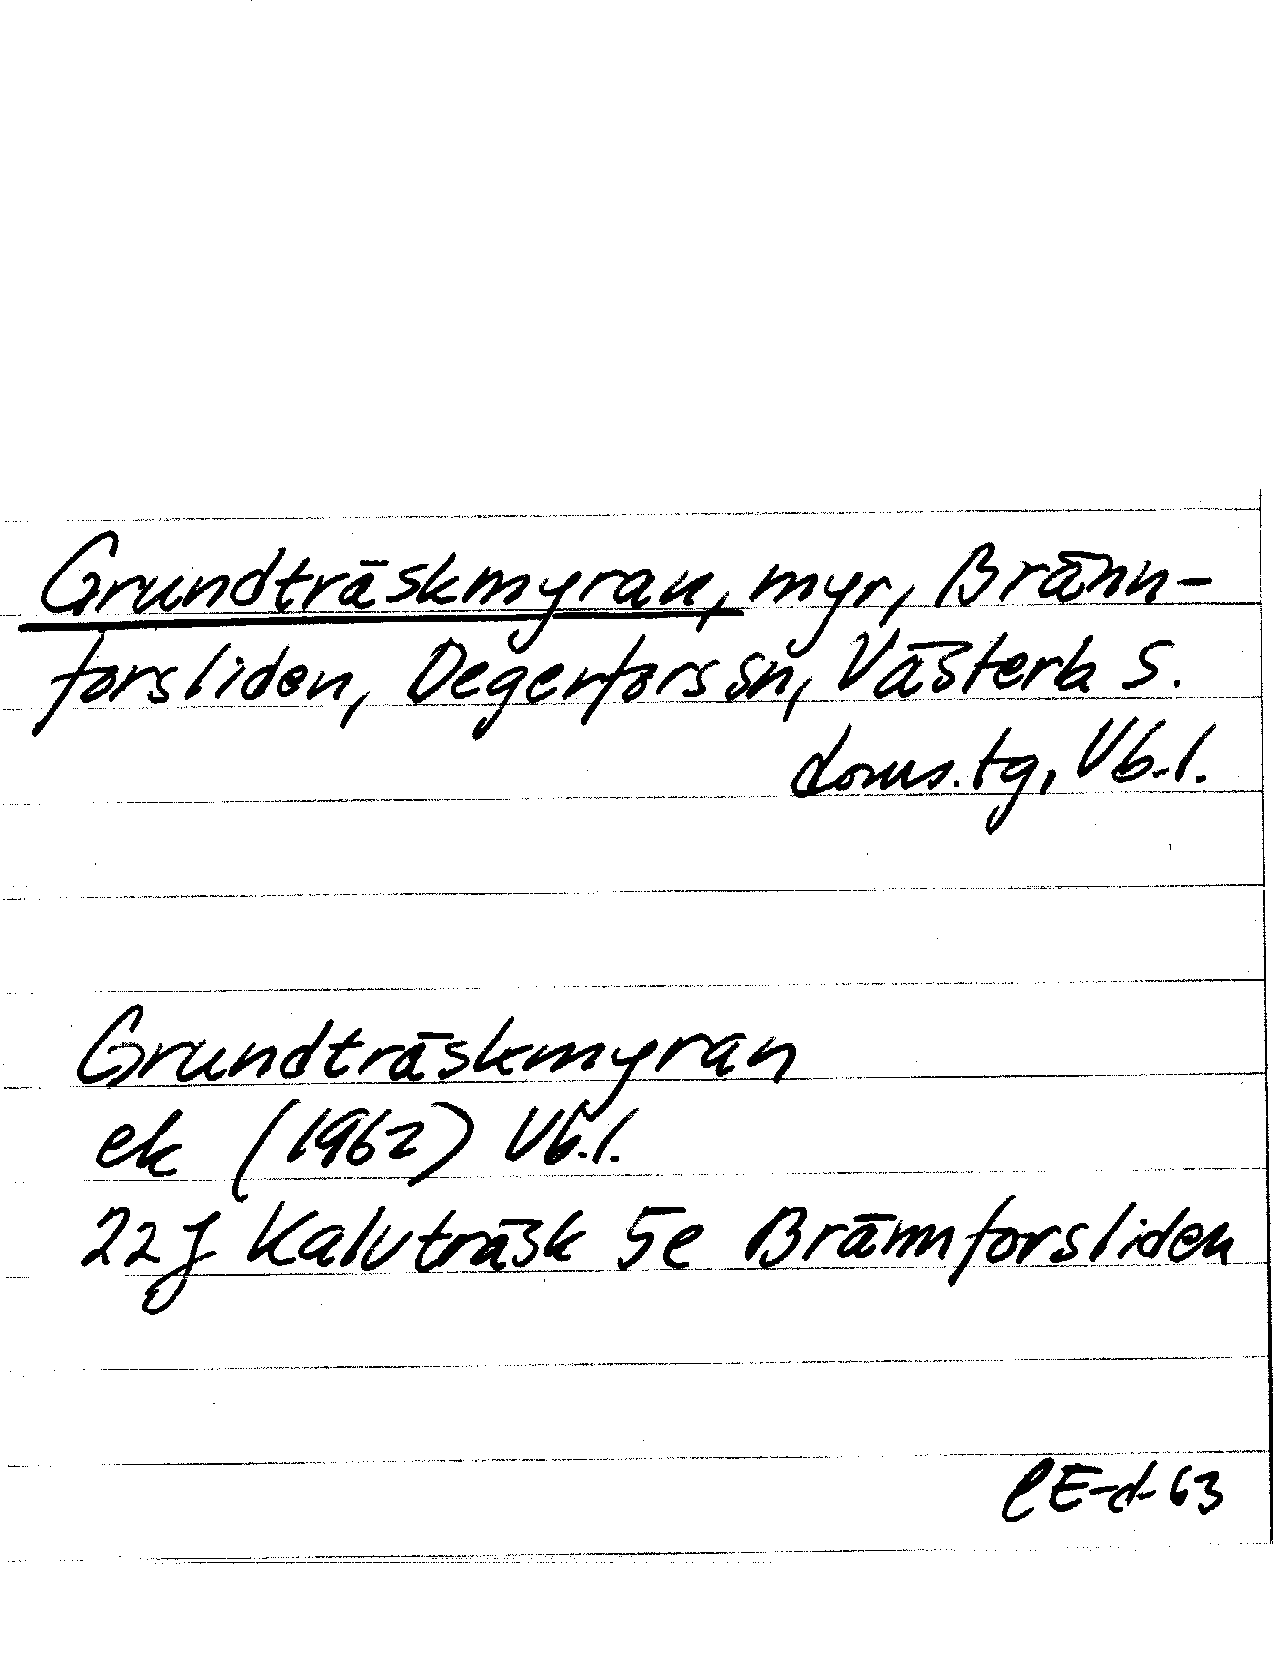 Grundträskmyran, myr, Bränn-
forsliden, Degerfors sn, Västerb S.
doms.tg, Vb.l.
Grundträskmyran
ek (1962) Vb.l.
22J Kalvträsk 5e Brännforsliden
CE-d-63